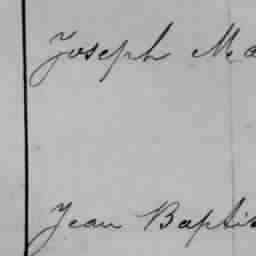 Joseph Ma
Jean Baptis